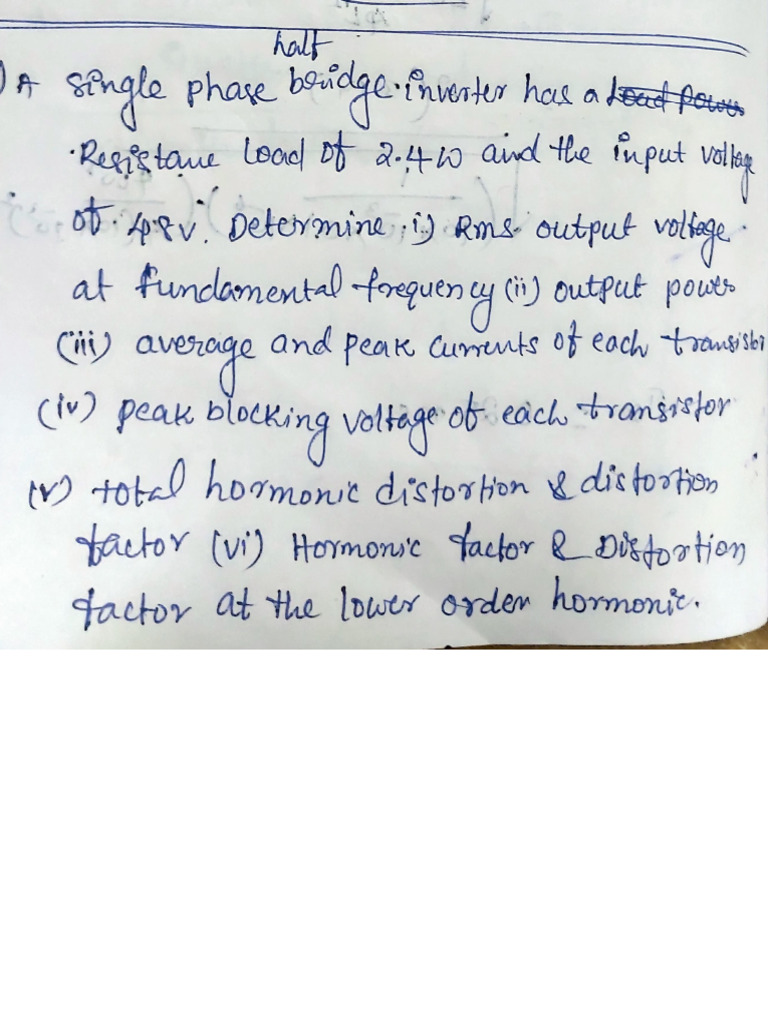 half
) A single phase bridge inverter has a Load power
Resistane Load of 2.4 W and the input voltage
of 48V. Determine i) Rms output voltage
at fundamental frequency (ii) output power
(iii) average and peak currents of each transistor
(iv) peak blocking voltage of each transistor
(v) total hormonic distortion & distortion
factor (vi) Hormonic factor & Distortion
factor at the lower order hormonic.